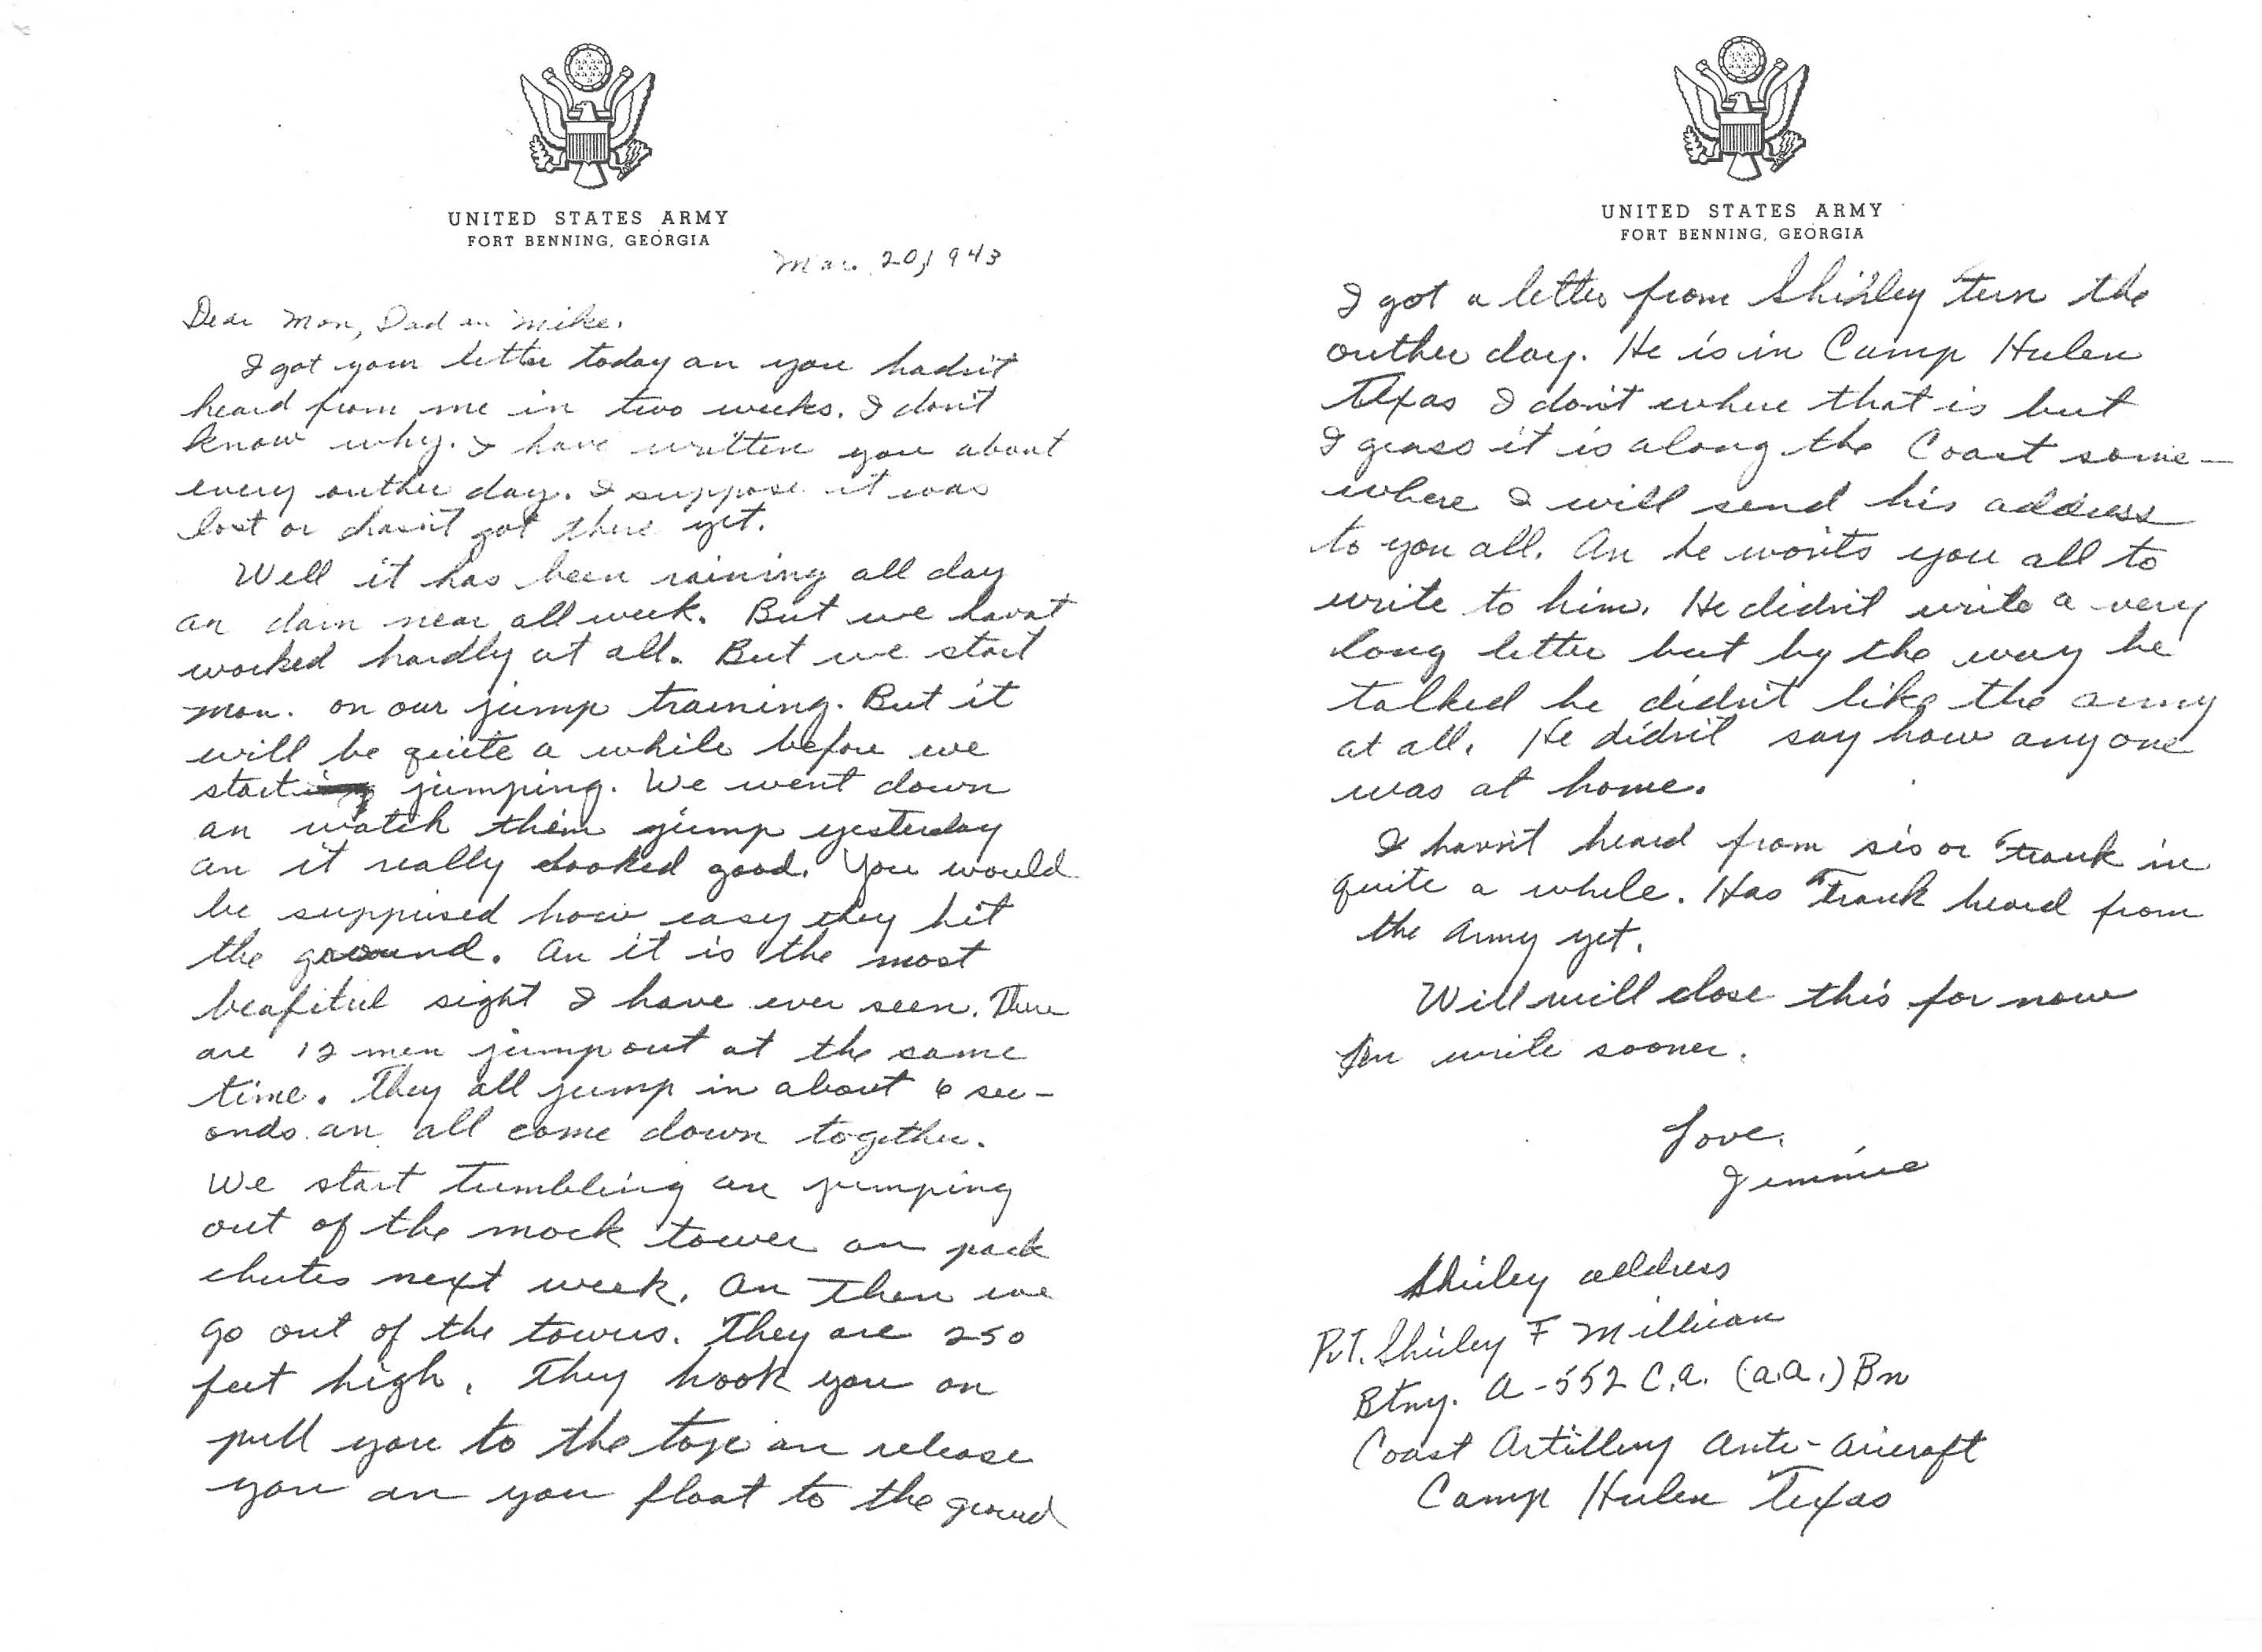 UNITED STATES ARMY
FORT BENNING, GEORGIA
Mar. 20, 1943
Dear Mon, Dad an Mike.
I got your letter today an you hadn't
heard from me in two weeks. I don't
know why. I have written you about
every outher day. I suppose it was
lost or hasn't got there yet.
Well it has been raining all day
an dam near all week. But we havnt
worked hardly at all. But we start
mon. on our jump training. But it
will be quite a while before we
start jumping. We went down
an watch them jump yesterday
an it really looked good. You would
be supprised how easy they hit
the ground. An it is the most
beafitul sight I have ever seen. There
are 12 men jump out at the same
time. They all jump in about 6 sec-
onds an all come down together.
We start tumbling an jumping
out of the mock tower an pack
chutes next week. An then we
go out of the towers. They are 250
feet high. They hook you on
pull you to the top an release
you an you float to the ground
UNITED STATES ARMY
FORT BENNING, GEORGIA
I got a letter from Shirley the
outher day. He is in Camp Hulen
Texas I don't where that is but
I geass it is along the Coast some-
where I will send his address
to you all. An he wonts you all to
write to him. He didn't write a very
long letter but by the way he
talked he didn't like the army
at all. He didn't say how anyone
was at home.
I havn't heard from sis or Frank in
quite a while. Has Frank heard from
the Army yet.
Will will close this for now
write sooner.
Love.
Jimmie
Shirley address
Pvt. Shirley F Millican
Btry. A-552 C.A. (A.A.) Bn
Coast Artillery Anti-Aircraft
Camp Hulen Texas